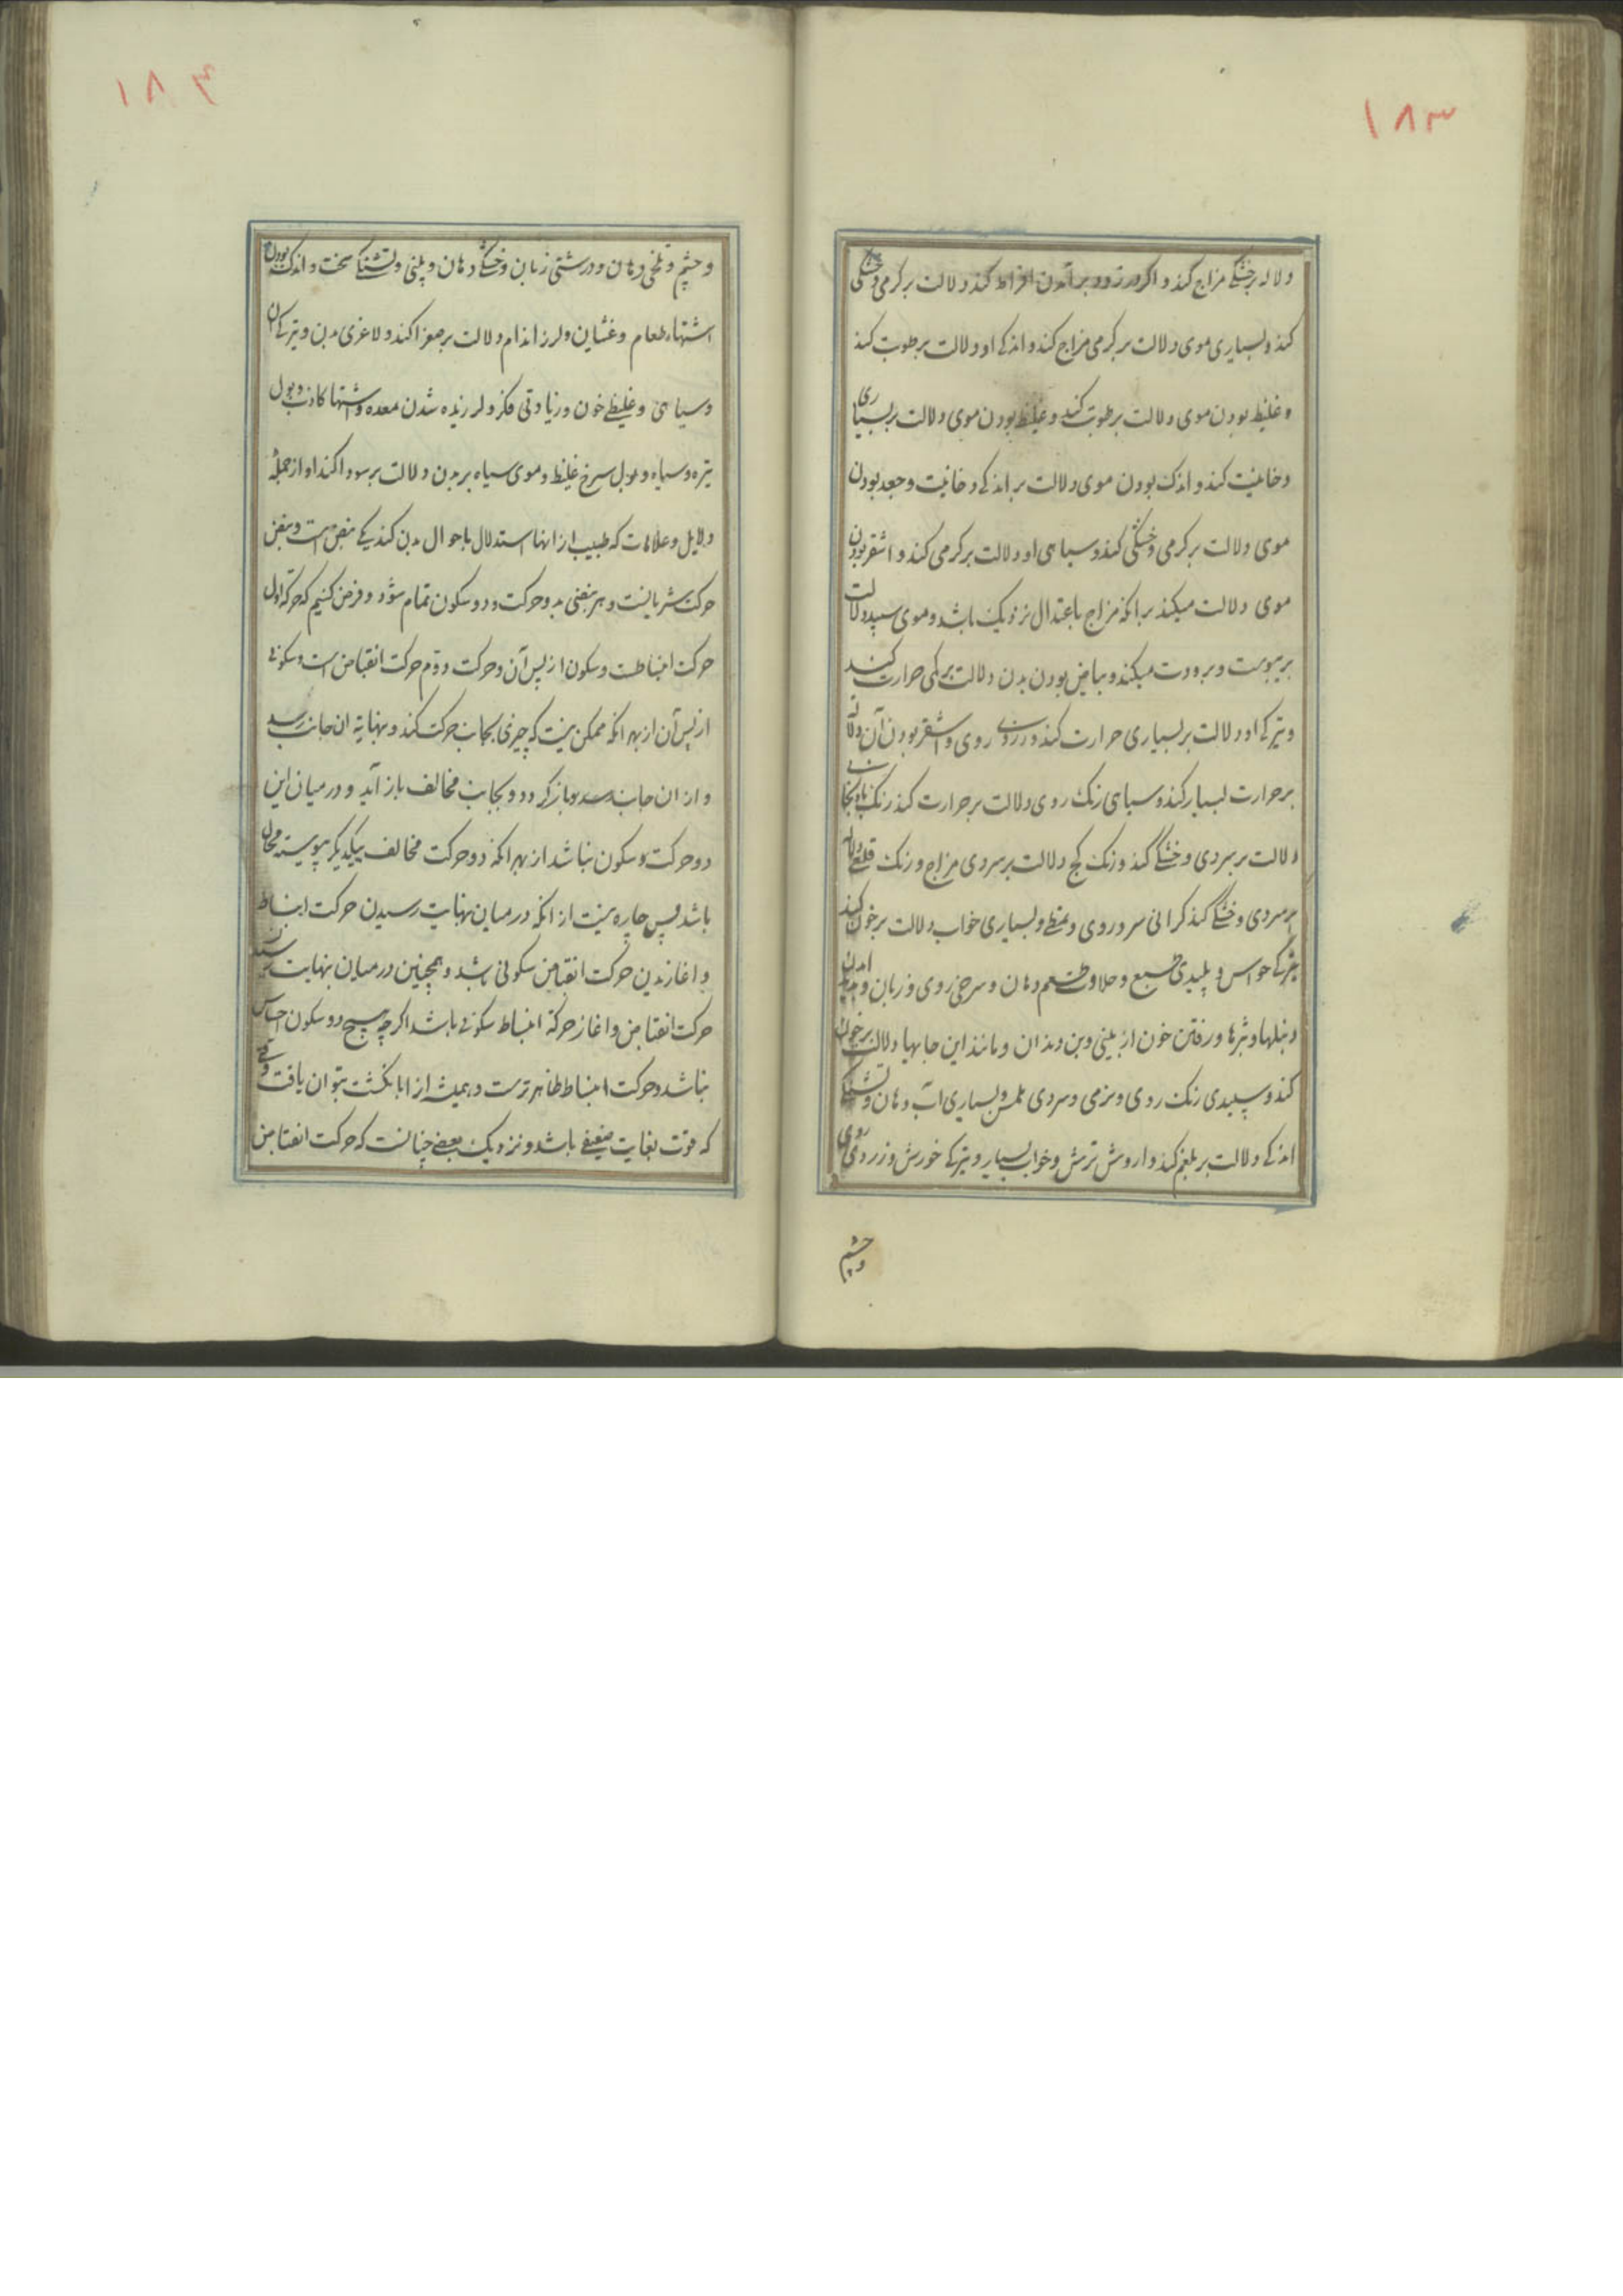 ۱۸۳
دلاله بر خشکی مزاج کند و اکر در زود بر آمدن افراط کند دلالت بر کرمی و خشکی
کند و بسیاری موی دلالت بر کرمی مزاج کند و اندکی او دلالت بر رطوبت کند
و غلیظ بودن موی دلالت بر رطوبت کند و غلیظ بودن موی دلالت بر بسیاری
دخانیت کند و اندک بودن موی دلالت بر اندکی دخانیت و جعد بودن
موی دلالت بر کرمی و خشکی کند و سیاهی او دلالت بر کرمی کند و اشقر بودن
موی دلالت میکند بر انکه مزاج باعتدال نزدیک باشد و موی سپید دلالت
بر یبوست و برودت میکند و بیاض بودن بدن دلالت بر کمی حرارت کند
و تیرکی او دلالت بر بسیاری حرارت کند و زردی روی و اشقر بودن آن دلاله
بر حرارت بسیار کند و سیاهی رنک روی دلالت بر حرارت کند رنک بادنجانی
دلالت بر سردی و خشکی کند و رنک کج دلالت بر سردی مزاج و رنک قلعی دلاله
بر سردی و خشکی کند کرانی سر و روی و تمطی و بسیاری خواب دلالت بر خون کند
تیرکی حواس و پلیدی طبع و حلاوت طعم دهان و سرخی روی و زبان و پدید امدن
دنبلها و بثرها و رفتن خون از بینی و بن دندان و مانند این جایها دلالت بر خون
کند و سپیدی رنک روی و نرمی و سردی ملمس و بسیاری آب دهان و تشنکی
اندکی دلالت بر بلغم کند و اروش ترش و خواب بسیار و تیرکی خورش و زردی روی
و چشم
۱۸۴
و چشم و تلخی دهان و درشتی زبان و خشکی دهان و بینی و تشنکی سخت و اندک بودن
اشتهاء طعام و غشیان و لرز اندام دلالت بر صفرا کند و لاغری بدن و تیرکی آن
و سیاهی و غلیظی خون و زیادتی فکر و لرزنده شدن معده و اشتها کاذب و بول
تیره و سیاه و بول سرخ غلیظ و موی سیاه بر بدن دلالت بر سودا کند او از جمله
دلایل و علامات که طبیب از انها استدلال باحوال بدن کند یکی نبض است و نبض
حرکت شریانیست و هر نبضی بدو حرکت و دو سکون تمام شود و فرض کنیم که حرکة اول
حرکت انبساطست و سکون از پس آن و حرکت دوم حرکت انقباض است و سکونی
از پس آن از بهر انکه ممکن نیست که چیزی بجانب حرکت کند و بنهایة ان جانب رسد
و از ان جانب رسد و باز کردد و بجانب مخالف باز آید و در میان این
دو حرکت سکون نباشد از بهر انکه دو حرکت مخالف بیکدیکر پیوسته محال
باشد پس چاره نیست از انکه در میان بنهایت رسیدن حرکت انبساط
و اغازیدن حرکت انقباض سکونی باشد و همچنین در میان بنهایت رسیدن
حرکت انقباض و اغاز حرکة انبساط سکونی باشد اکر چه هیچ دو سکون احساس
نباشد و حرکت انبساط ظاهرترست و همیشه از ابانکشت بتوان یافت وقتی
که قوت بغایت ضعیفی باشد و نزدیک بعضی چنانست که حرکت انقباض